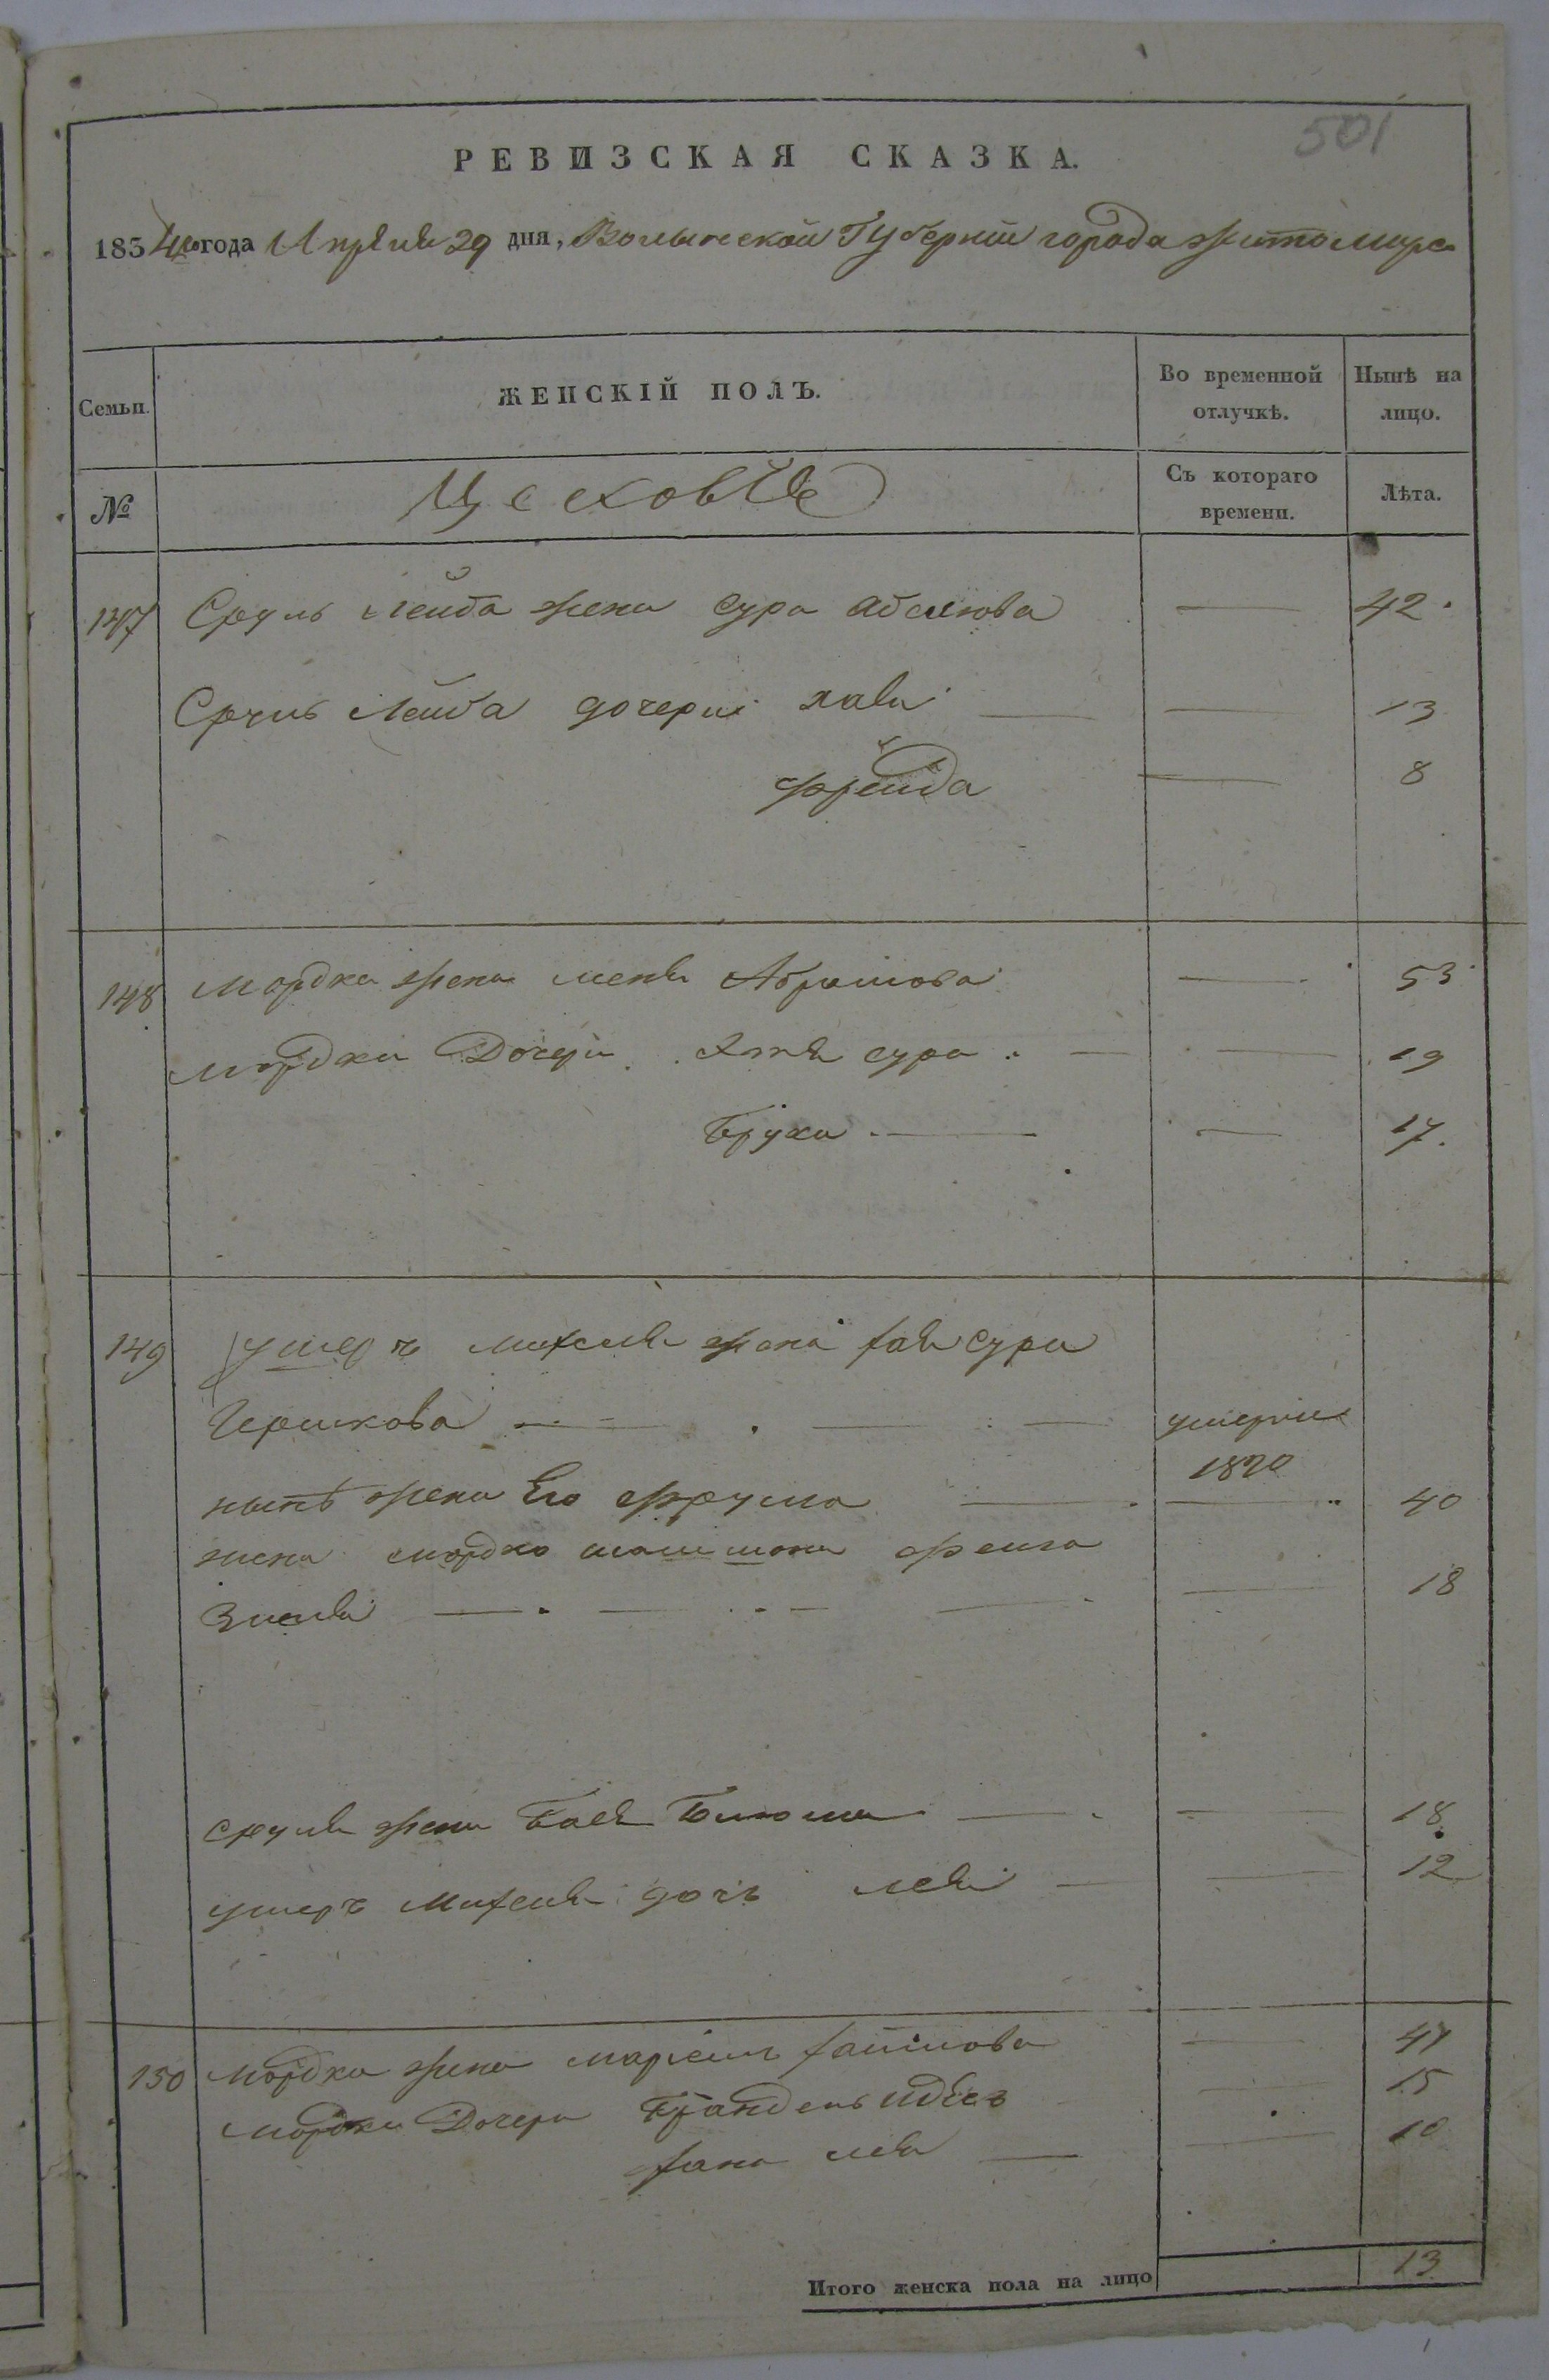 501
РЕВИЗСКАЯ СКАЗКА.
1854го года Апреля 29 дня, Волынской Губернии города Житомира
Семьи. ЖЕНСКІЙ ПОЛЪ. Во временной отлучкѣ. Нынѣ на лицо.
№ Цеховые Съ котораго времени. Лѣта.
147 Сруль Лейба жена Сура — 42
Сруль Лейба дочери — — 13
Фрейда — 8
148 Мордка жена Абрамова — 53
Мордки Дочери сура — — 19
Бруха — — 17
149 умеръ жена Хая Сура
Гершкова — — — умерла
1820
нынѣ жена Его Фрума — — 40
жена Мордко Фейга
Зисля — — — — — 18
Сруля жена Бася Блюма — — 18
умеръ дочь Лея — — 12
150 Мордка жена Маріемъ Хаимова — 47
Мордки Дочери — 15
Хана Лея — — 10
Итого женска пола на лицо 13